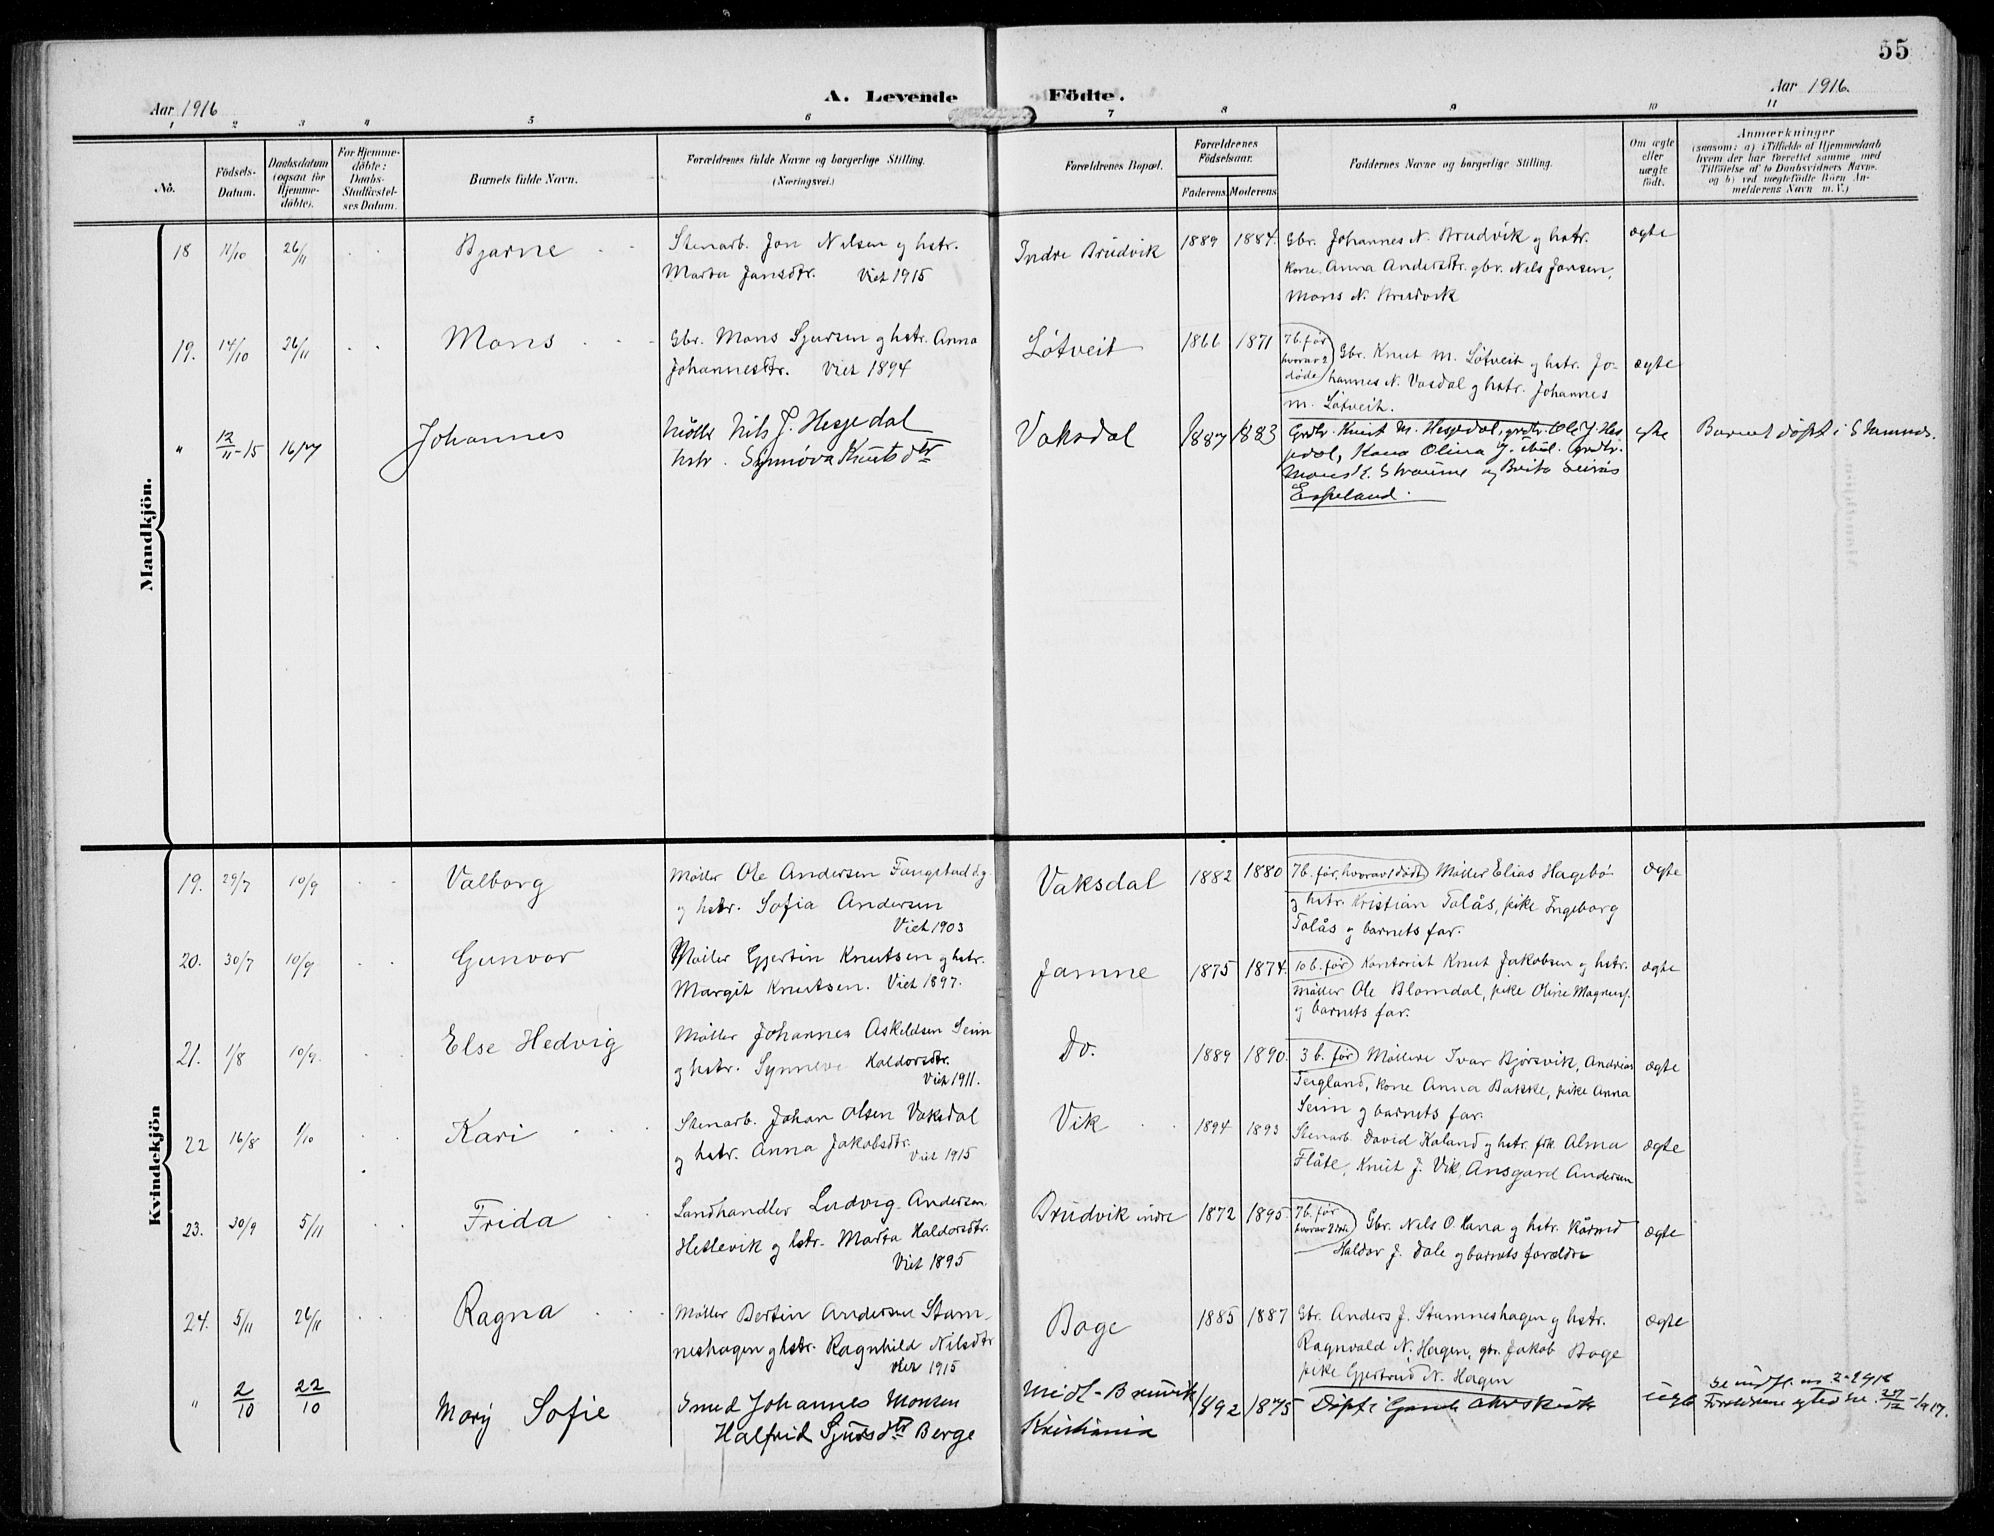 55
Aar 1916
A. Levende Födte.
Aar 1916.
1 2 3 4 5 6 7 8 9 10 11
No.
Födsels-
Datum.
Daabsdatum
(ogsaa för
Hjemme-
döbte).
For Hjemme-
döbte:
Daabs-
Stadfæstel-
ses Datum.
Barnets fulde Navn.
Forældrenes fulde Navne og borgerlige Stilling.
(Næringsvei.)
Forældrenes Bopæl.
Forældrenes
Födselsaar.
Faderens Moderens
Faddernes Navne og borgerlige Stilling.
Om ægte
eller
uægte
födt.
Anmærkninger
(saasom: a) i Tilfælde af Hjemmedaab
hvem der har forrettet samme med
Tilföielse af to Daabsvidners Navne.
og b) ved uægtefödte Börn An-
melderens Navn m. V.)
Mandkjön.
18 11/10 26/11 Bjarne
Stenarb. Jon Nilsen og hstr.
Marta Jansdtr. Viet 1915
Indre Brudvik 1889 1884.
Gbr. Johannes N. Brudvik og hstr.
kone Anna Andersdtr. gbr. Nils Jonsen,
Mons N. Brudvik
ægte
19. 14/10 26/11 Mons
Gbr. Mons Sjursen og hstr. Anna
Johannesdtr. Viet 1894
Løtveit 1866 1871
7 b. før
hvorav 2
døde
Gbr. Knut M. Løtveit og hstr. Jo-
hannes N. Vasdal og hstr. Johannes
M. Løtveit.
ægte
" 12/11-15 16/1 Johannes
Møller Nils J. Hesjedal
hstr. Synnøva Knutsdtr
Vaksdal 1887 1883
Grdbr. Knut M. Hesjedal, grdbr. Ole J. Hes
jedal, Kona Olina J. ibid. Grdbr.
Mons K. Straume og Brita
Espeland.
egte
Barnet døpt i Stamnes.
Kvindekjön
19. 29/7 10/9 Valborg
Møller Ole Andersen
og hstr. Sofia Andersen
Viet 1903
Vaksdal 1882 1880
7 b. før, hvorav 1 død Møller Elias Hagebø
og hstr. Kristian Tolås, pike Ingeborg
Tolås og barnets far.
ægte
20. 30/7 10/9 Gunvor
Møller Gjertin Knutsen og hstr.
Margit Knutsen. Viet 1897.
Jamne 1875 1874.
10 b. før Kontorist Knut Jakobsen og hstr.
Møller Ole Blomdal, pike Oline Magnus.
og barnets far.
ægte
21. 1/8 10/9. Else Hedvig
Møller Johannes Askeldsen Seim
og hstr. Synneve Haldorsdtr.
Viet 1911.
Do. 1889 1890.
3 b. før Møllere Ivar Bjørsvik, Andreas
Teigland, kone Anna Bakke, pike Anna
Seim og barnets far.
ægte
22 16/8 1/10 Kari
Stenarb. Johan Olsen Vaksdal
og hstr. Anna Jakobsdtr.
Viet 1915
Vik 1894 1893
Stenarb. David Kaland og hstr. frk. Alma
Flåte, Knut J. Vik, Ansgard Andersen
ægte
23. 30/9 5/11 Frida
Landhandler Ludvig Andersen
Hellevik og hstr. Marta Haldorsdtr.
Viet 1895
Brudvik indre 1872 1895
7 b. før
hvorav 2 døde
Gbr. Nils O. Hana og hstr.
Haldor J. Dale og barnets forældre
ægte
24. 5/11 26/11 Ragna
Møller Bertin Andersen Stam-
neshagen og hstr. Ragnhild Nilsdtr
Viet 1915
Boge 1885 1887
Gbr. Anders J. Stamneshagen og hstr.
Ragnvald N. Hagen, gbr. Jakob Boge
pike Gjertrud N. Hagen
ægte
" 2/10 22/10 Mary Sofie
Smed Johannes Monsen
Halfrid Sjursdtr Berge
Midt-Bruvik
Kristiania
1892 1875
Døpt i Gamle Akers Kirke
uegte